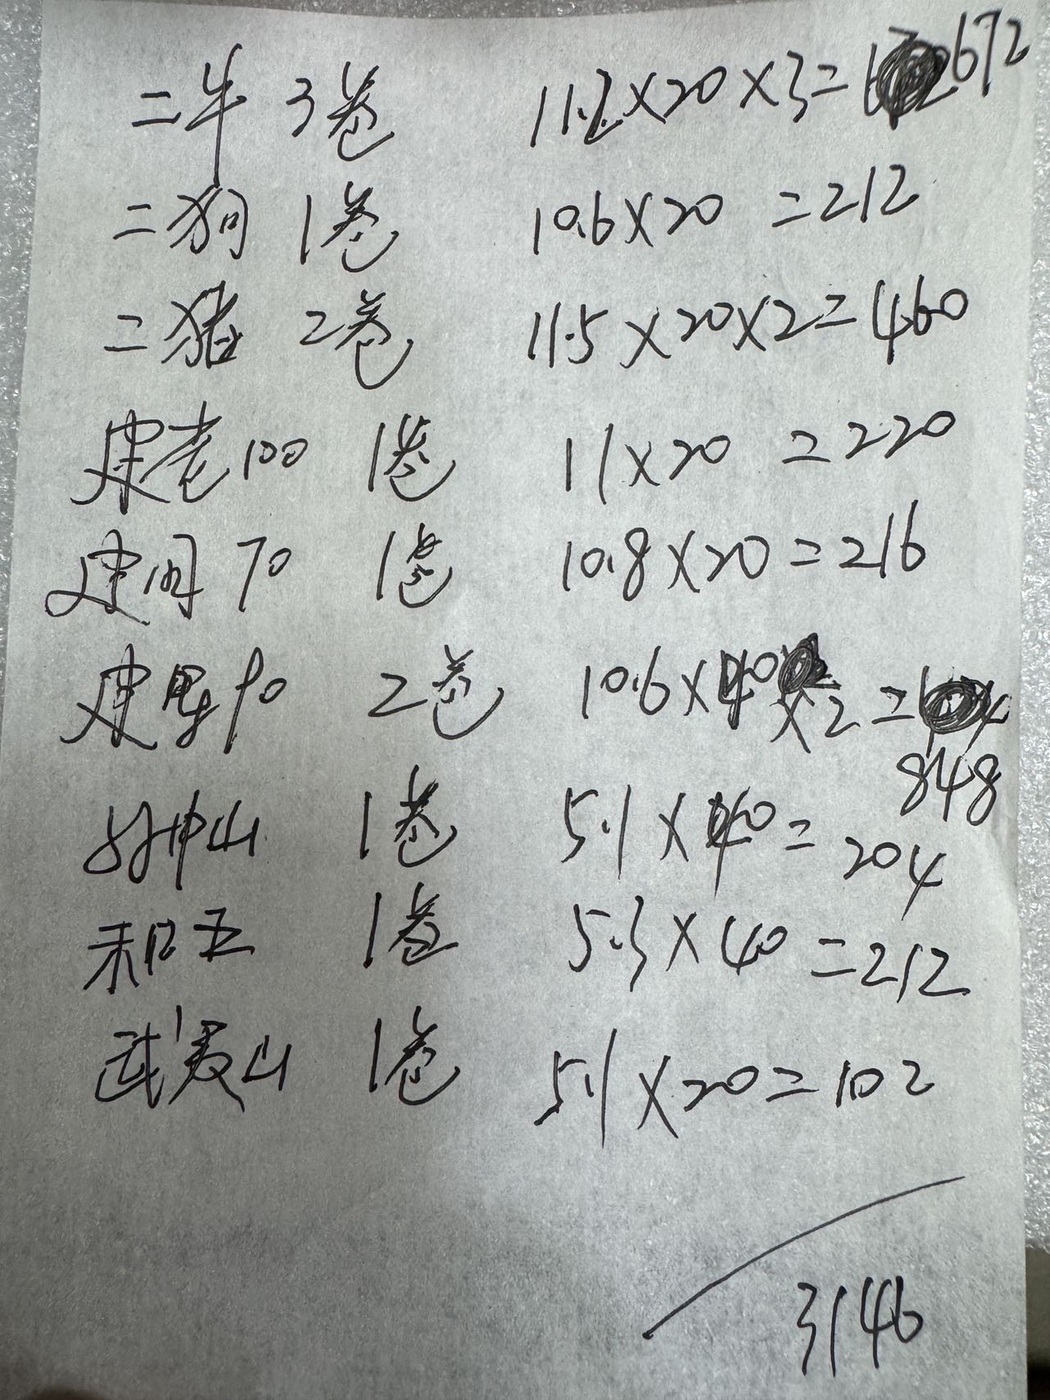 二牛 3卷 11.2×20×3=672
二狗 1卷 10.6×20 =212
二猪 2卷 11.5×20×2=460
建老100 1卷 11×20 =220
建网70 1卷 10.8×20=216
建军90 2卷 10.6×40×2=
848
孙中山 1卷 5.1×40=204
和五 1卷 5.3×40=212
武夷山 1卷 5.1×20=102
3146